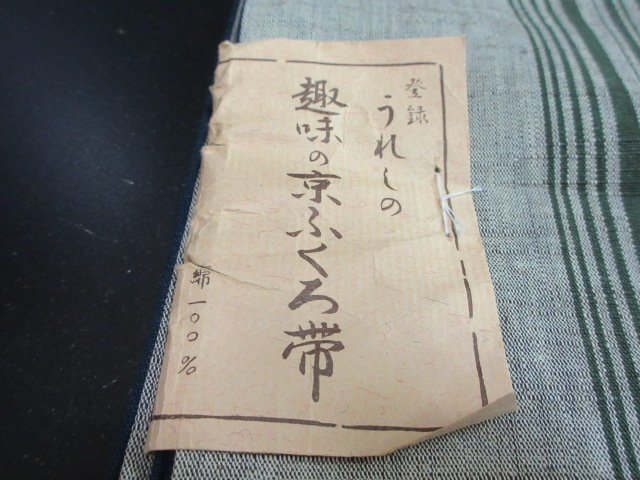 登録
うれしの
趣味の京ふくろ帯
綿一〇〇%